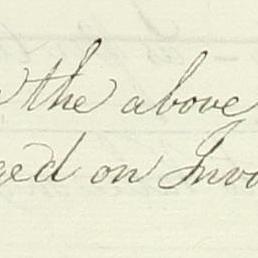 the above
ged on Invo